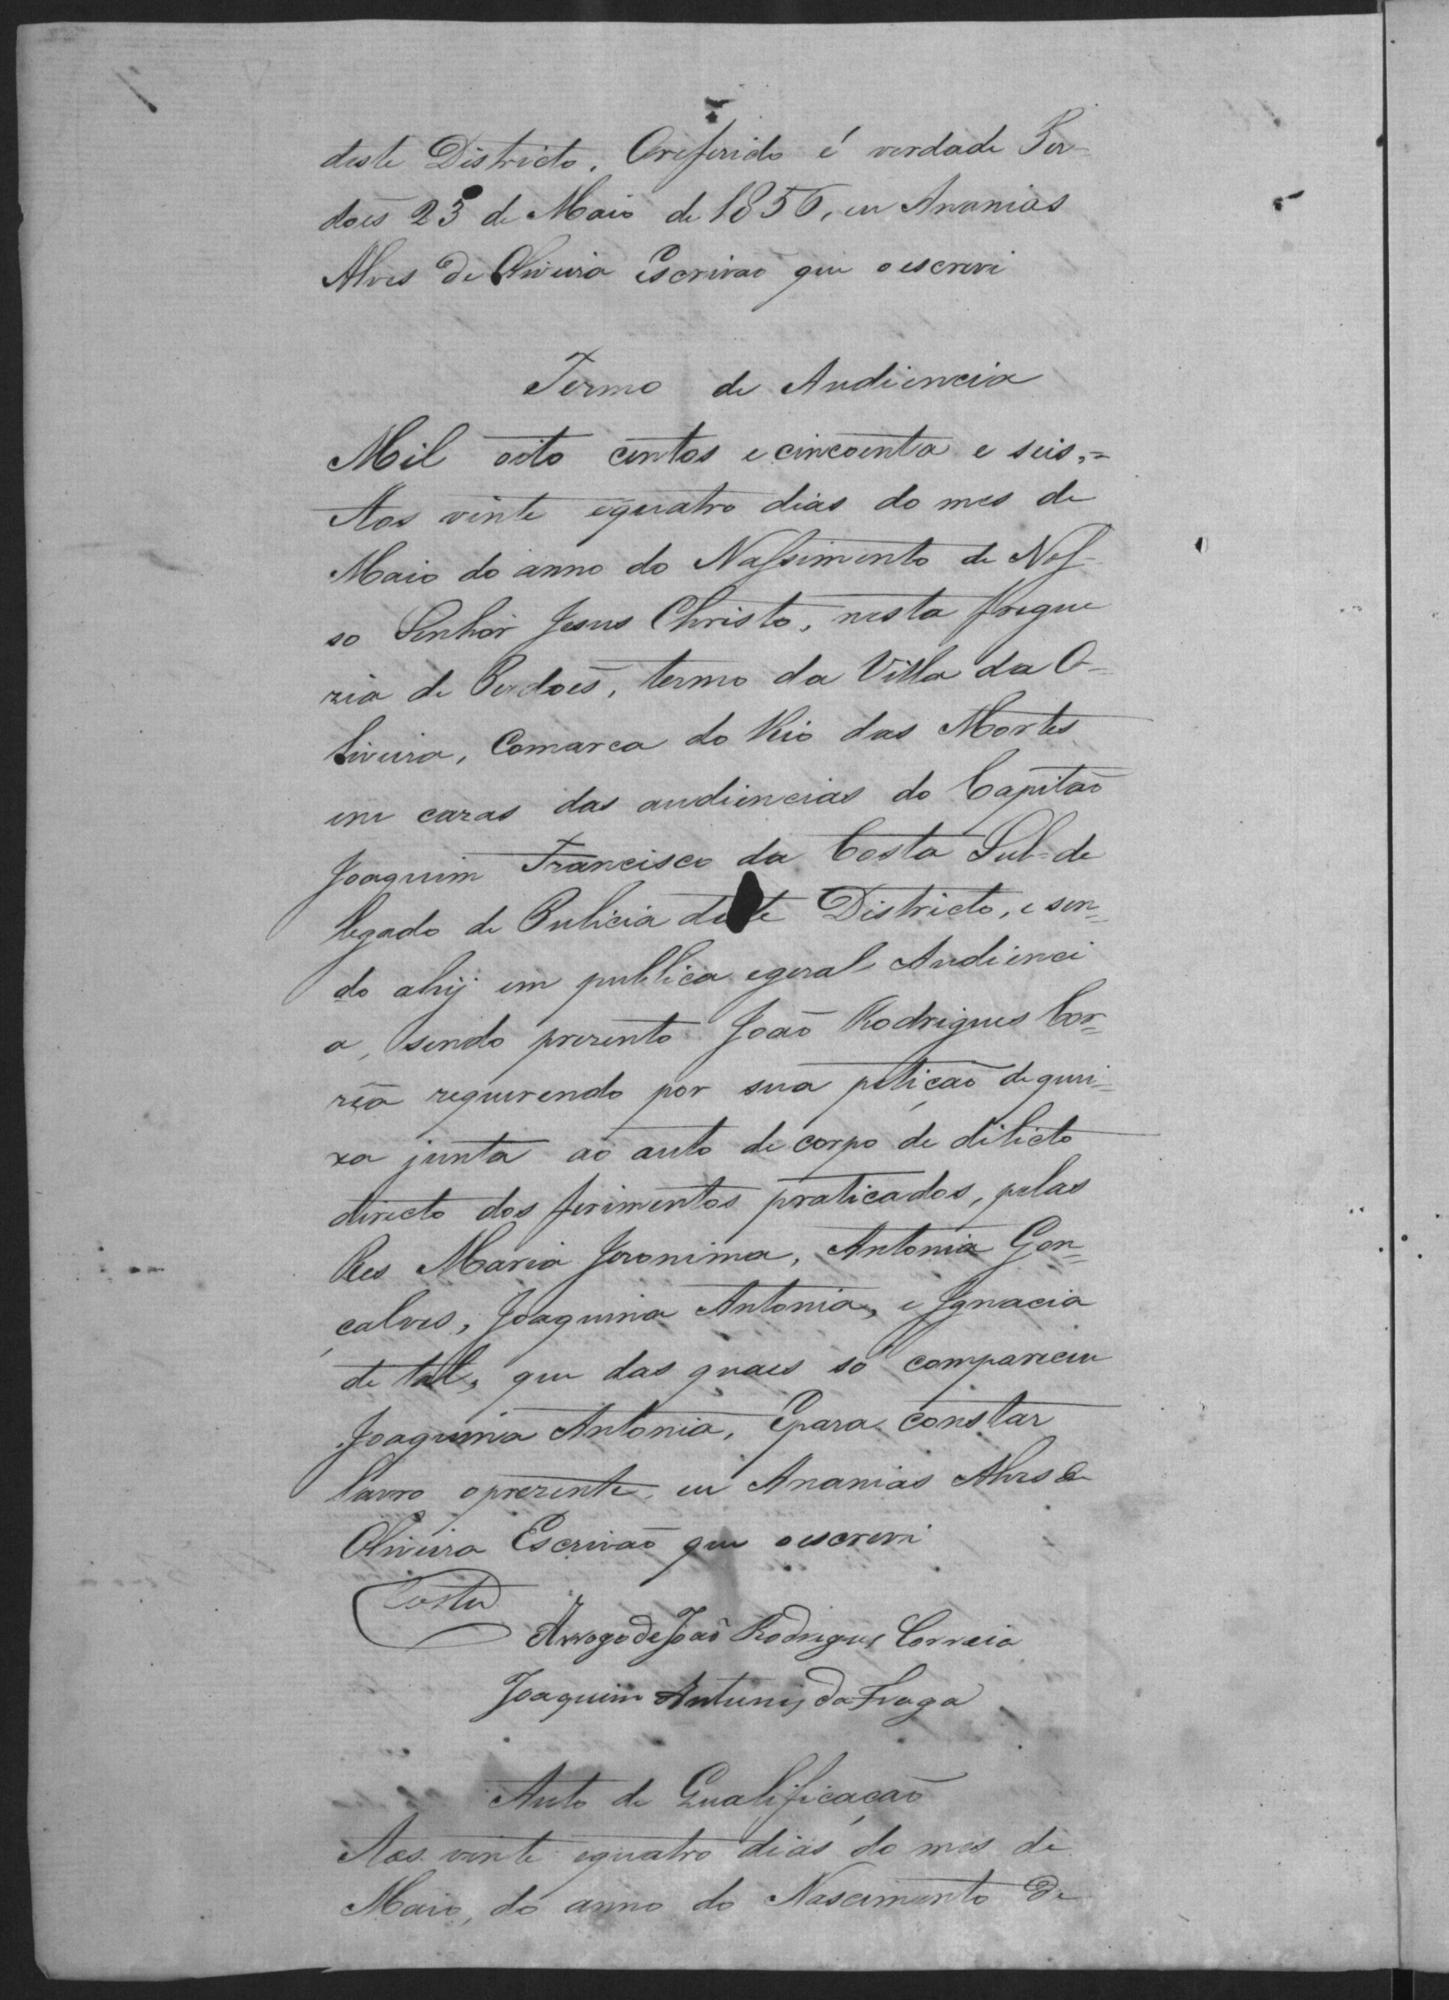 deste Districto. Oreferido é verdade Per-
dões 23 de Maio de 1856, eu Ananias
Alves de Oliveira Escrivaõ que o escrevi
Termo de Audiencia
Mil oito centos e cincoenta e seis,=
Aos vinte equatro dias do mes de
Maio do anno do Nassimento de Nos-
so Senhor Jesus Christo, nesta fregue
zia de Perdoẽs, termo da Villa da O=
liveira, Comarca do Rio das Mortes
em cazas das audiencias do Capitaõ
Joaquim Francisco da Costa Sub=de
legado de Pulicia deste Districto, e sen=
do ahij em publica egeral Audienci
a, sendo prezente Joaõ Rodrigues Cor=
rêa requerendo por sua petiçaõ de quei=
xa junta ao auto de corpo de dilicto
directo dos ferimentos praticados, pelas
Res Maria Jeronima, Antonia Gon=
çalves, Joaquina Antonia, e Ignacia
de tal, que das quaes só compareceu
Joaquina Antonia, Epara constar
lavro oprezente, eu Ananias Alves de
Oliveira Escrivaõ que o escrevi
Costa
Arrogo de Joaõ Rodrigues Correia
Joaquim Antunes da Fraga
Auto de Qualificaçaõ
Aos vinte equatro dias do mes de
Maio, do anno do Nascimento de